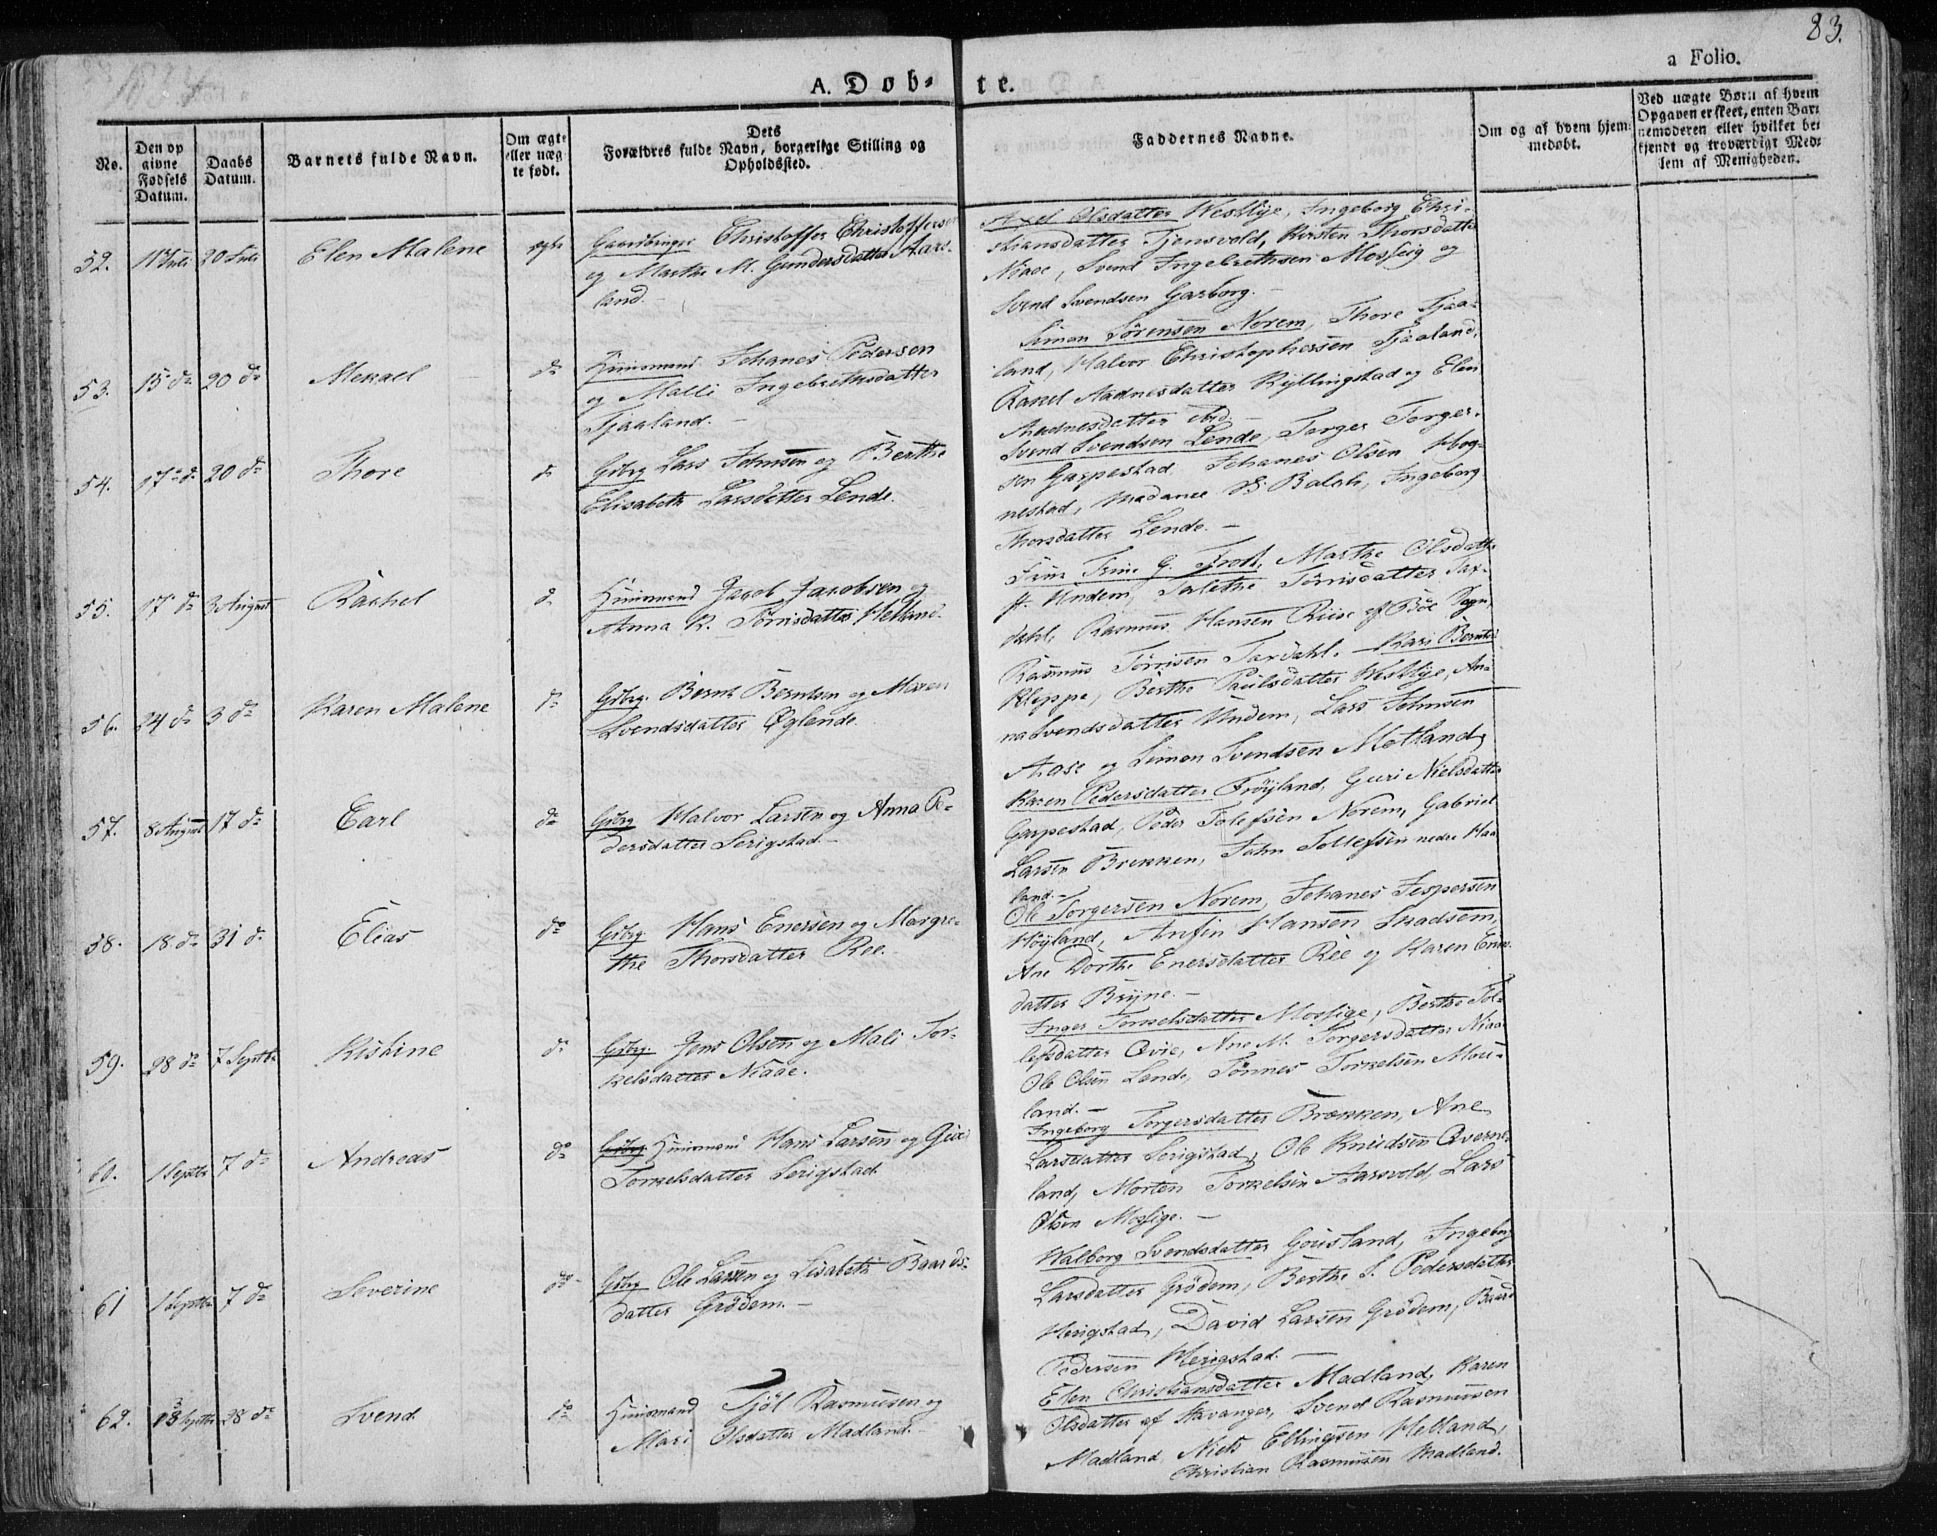 83.
1834
a Folio.
A. Døb-
te.
No.
Den op
givne
Fødsels
Datum.
Daabs
Datum.
Barnets fulde Navn.
Om ægte
eller uæg
te født.
Dets
Forældres fulde Navn, borgerlige Stilling og
Opholdssted.
Faddernes Navne.
Om og af hvem hjem
medøbt.
Ved uægte Børn af hvem
Opgaven er skeet, enten Bar
nemoderen eller hvilket be
kjendt og troværdigt Med
lem af Menigheden.
52. 11 Juli 20 Juli Elen Malene ægte Gaardbruger Christoffer Christoffers
og Marthe M. Gundersdatter Aars-
land.
Axel Olsdatter Westlye, Ingeborg Chri-
stiansdatter Tjensvold, Kirsten Thorsdatter
Niaae, Svend Ingebrethsen Mossig og
Svend Svendsen Garborg.
53. 15 do 20 do Mekael do Huusmand Johanes Pedersen
og Malli Ingebrethsdatter
Tjaaland.
Simon Sörensen Norem, Thore Tjaa-
land, Halvor Christophersen Tjaaland,
Rakel Aadnesdatter Kyllingstad og Elen
Aadnesdatter
54. 17 do 20 do Thore do Gdbrg Lars Johnsen og Berthe
Elisabeth Larsdatter Lende.
Svend Svendsen Lende, Torger Torger-
sen Garpestad, Johanes Olsen Hog-
nestad, Madame B. Balch, Ingeborg
Thorsdatter Lende.
55. 17 do 3 August Rachel do Huusmand Jacob Jacobsen og
Anna K. Törrisdatter Helland.
Trine G. Frost, Marthe Olsdatter
Undem, Talethe Törrisdatter Tax-
dahl, Rasmus Hansen Riise af Böe Sogn,
Rasmus Törrisen Taxdahl.
56. 24 do 3 do Karen Malene do Gdbrg. Bernt Berntsen og Maren
Svendsdatter Öglende.
Kari Bernts
Kleppe, Berthe Paulsdatter Westlye, An-
na Svendsdatter Undem, Lars Johnsen
Aase og Simon Svendsen Motland,
57. 8 August 17 do Carl do Gdbrg Halvor Larsen og Anna Pe-
dersdatter Serigstad.
Karen Pedersdatter Fröyland, Guri Nielsdatter
Garpestad, Peder Tolefsen Norem, Gabriel
Larsen Brekken, John Tollefsen nedre Haa
land.
58. 18 do 31 do Elias do Gdbrg. Hans Enersen og Margre-
the Thorsdatter Ree.
Ole Torgersen Norem, Johanes Jespersen
Höyland, Anfin Hansen Skadsem,
Ane Dorthe Enersdatter Ree og Karen Eners
datter Bryne.
59. 28 do 7 Septbr Kistine do Gdbrg. Jens Olsen og Mali Tor-
kelsdatter Niaae.
Inger Torkelsdatter Mossige, Berthe Tol-
lefsdatter Qvie, Ane M. Torgersdatter Niaae
Ole Olsen Lande, Tönnes Torkelsen
land.
60. 1 Septbr 7 do Andreas do Gdbrg Huusmand Hans Larsen og Guri
Torkelsdatter Serigstad.
Ingeborg Torgersdatter Brekken, Ane
Larsdatter Serigstad, Ole Knudsen Qverne-
land, Morten Torkelsen Aarsvold, Lars
Olsen Mossige.
61 1 Septbr 7 do Severine do Gdbrg Ole Larsen og Lisabeth Baards-
datter Grödem.
Walborg Svendsdatter Gousland, Ingeborg
Larsdatter Grödem, Berthe S. Pedersdatter
Herigstad, David Larsen Grödem, Baard
Pedersen Herigstad.
62. Septbr 28 do Svend do Huusmand Tjöl Rasmussen og
Mari Olsdatter Madland.
Elen Christiansdatter Madland, Karen
Olsdatter af Stavanger, Svend Rasmussen
Madland, Niels Ellingsen Helland,
Christian Rasmussen Madland.